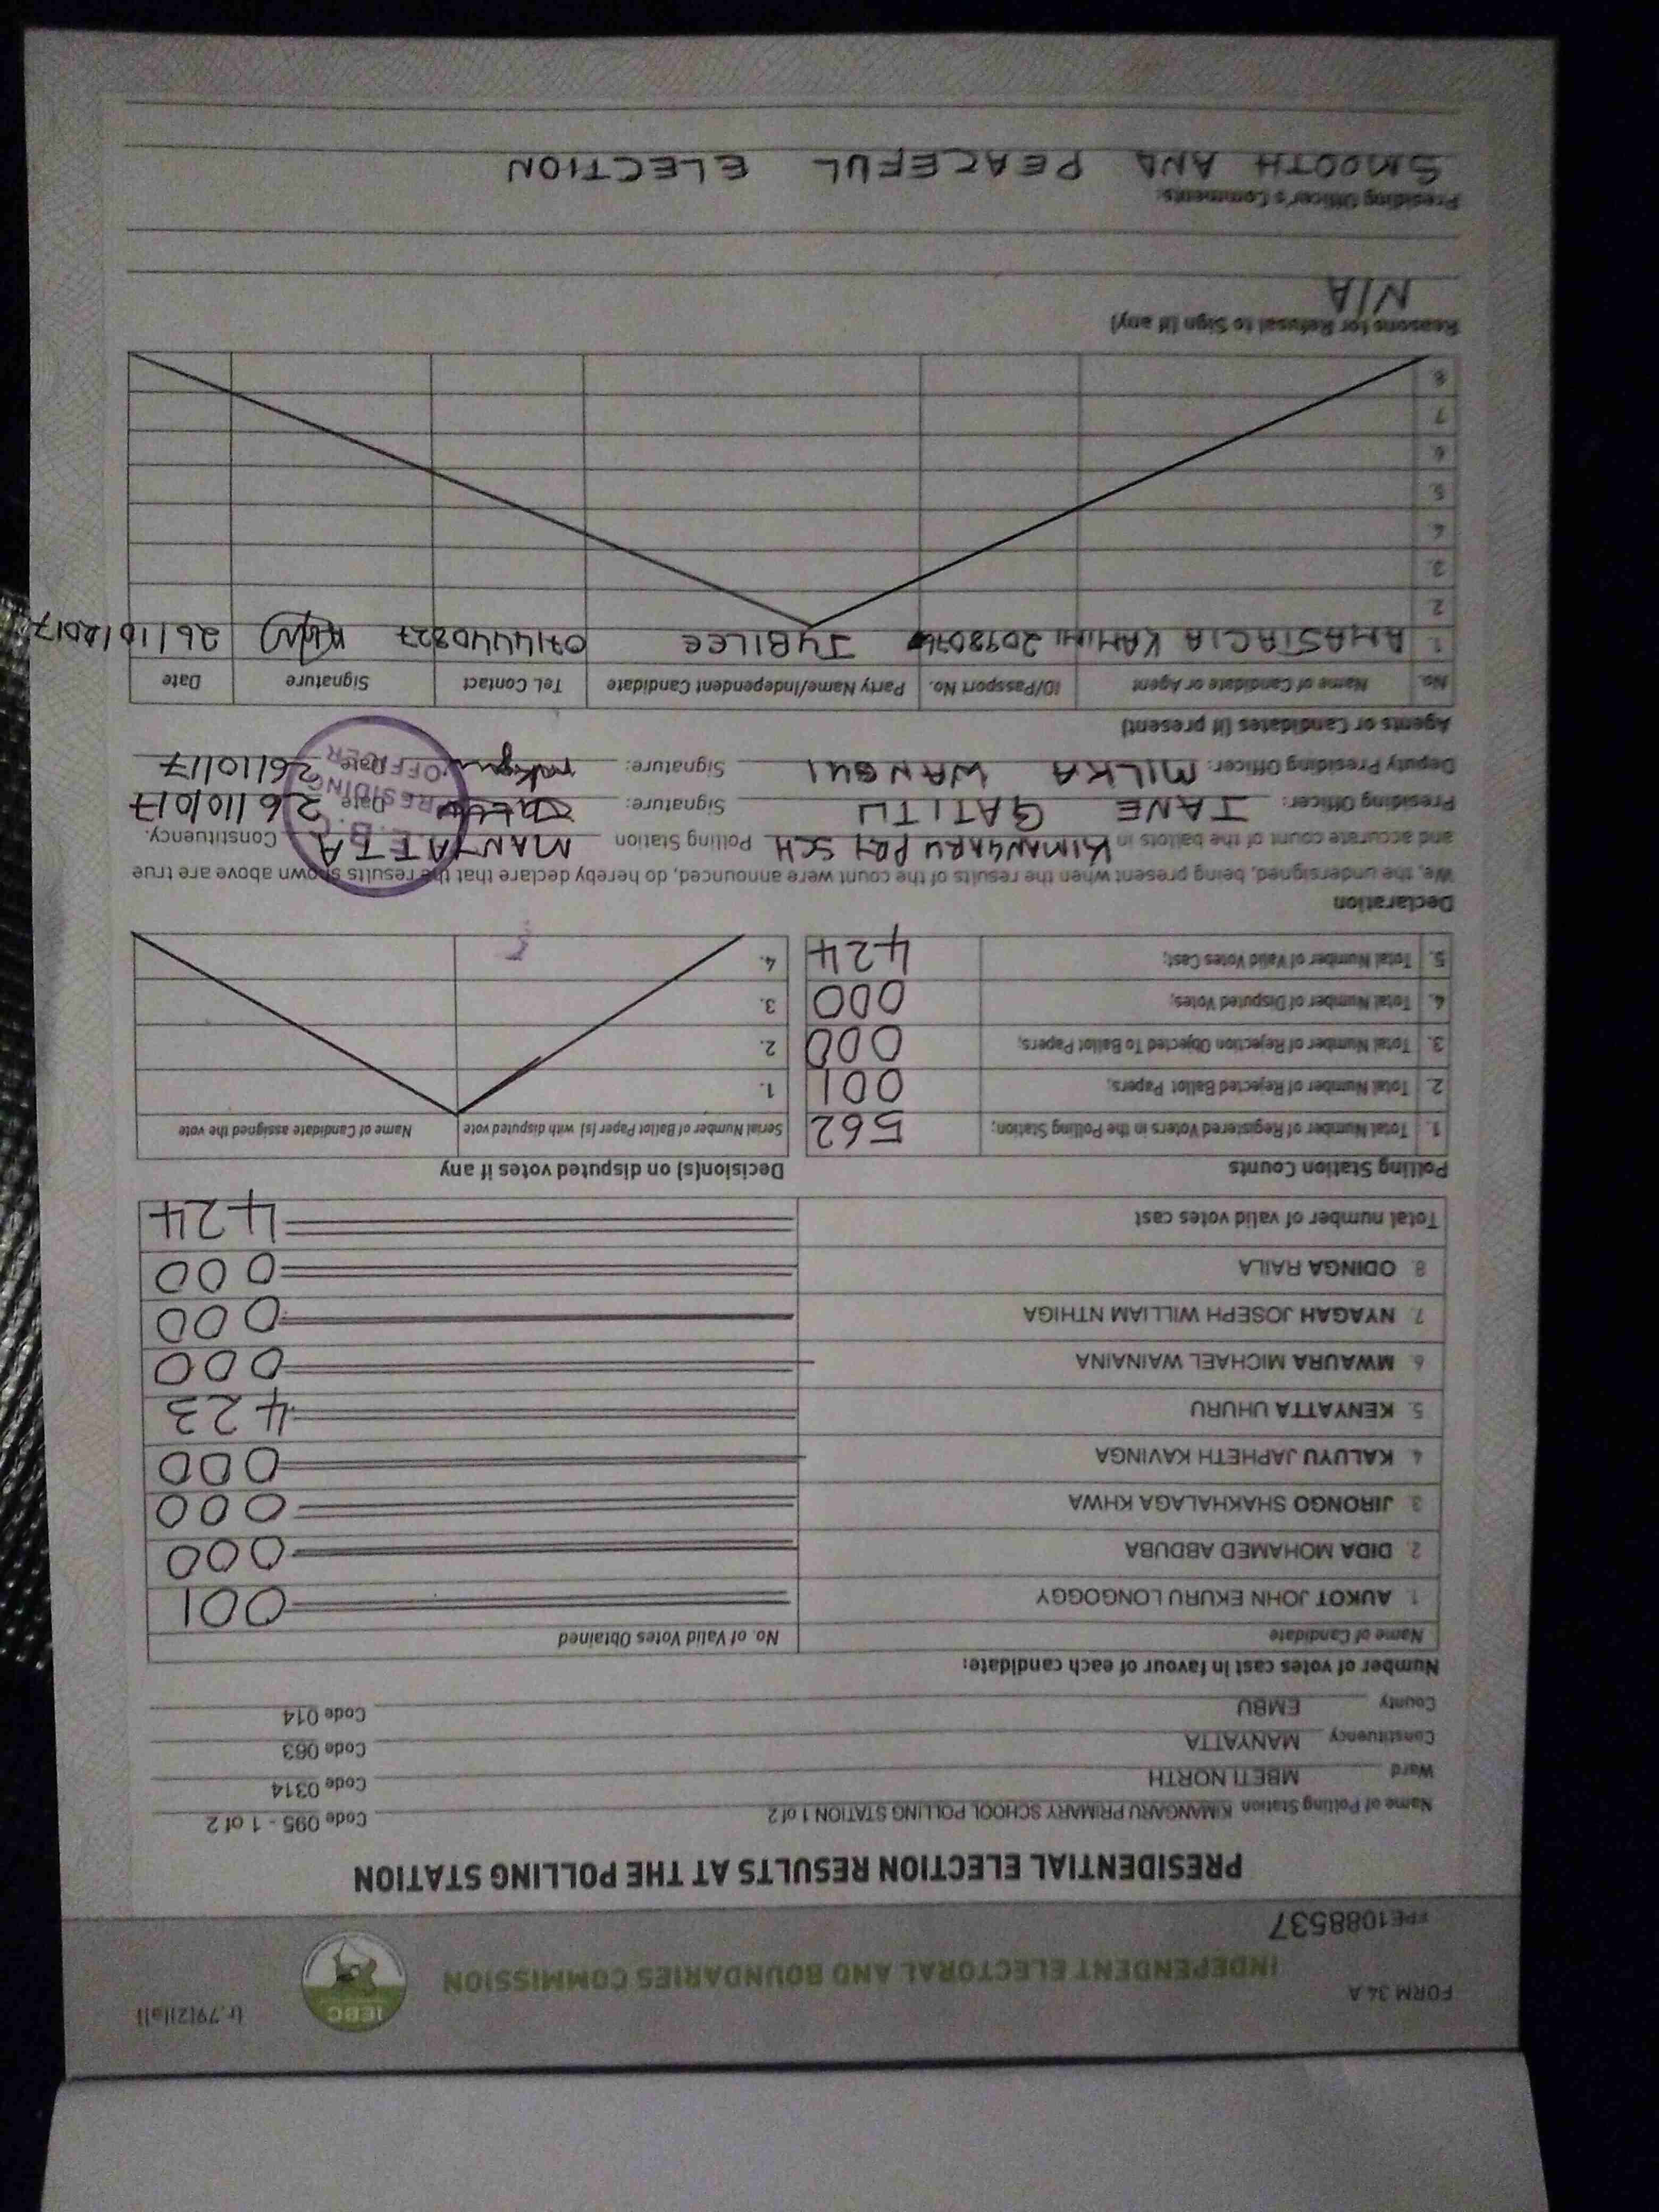 FORM 34 A
(r.79(2)(a))
INDEPENDENT ELECTORAL AND BOUNDARIES COMMISSION
IEBC
FPE1088537
PRESIDENTIAL ELECTION RESULTS AT THE POLLING STATION
Name of Polling Station KIMANGARU PRIMARY SCHOOL POLLING STATION 1 of 2 Code 095 - 1 of 2
Ward MBETI NORTH Code 0314
Constituency MANYATTA Code 063
County EMBU Code 014
Number of votes cast in favour of each candidate:
Name of Candidate No. of Valid Votes Obtained
1. AUKOT JOHN EKURU LONGOGGY 001
2. DIDA MOHAMED ABDUBA 000
3. JIRONGO SHAKHALAGA KHWA 000
4. KALUYU JAPHETH KAVINGA 000
5. KENYATTA UHURU 423
6. MWAURA MICHAEL WAINAINA 000
7. NYAGAH JOSEPH WILLIAM NTHIGA 000
8. ODINGA RAILA 000
Total number of valid votes cast 424
Polling Station Counts
1. Total Number of Registered Voters in the Polling Station; 562
2. Total Number of Rejected Ballot Papers; 001
3. Total Number of Rejection Objected To Ballot Papers; 000
4. Total Number of Disputed Votes; 000
5. Total Number of Valid Votes Cast; 424
Decision(s) on disputed votes if any
Serial Number of Ballot Paper (s) with disputed vote Name of Candidate assigned the vote
1.
2.
3.
4.
Declaration
We, the undersigned, being present when the results of the count were announced, do hereby declare that the results shown above are true
and accurate count of the ballots in KIMANGARU PRY SCH Polling Station MANYATTA Constituency.
Presiding Officer: JANE GATITU Signature: Date 26/10/017
Deputy Presiding Officer: MILKA WANGUI Signature: Date 26/10/17
I.E.B.C
PRESIDING
OFFICER
Agents or Candidates (if present)
No. Name of Candidate or Agent ID/Passport No. Party Name/Independent Candidate Tel. Contact Signature Date
1. ANASTACIA JUBILEE 0714440827 26/10/2017
2
3.
4.
5.
6
7
8.
Reasons for Refusal to Sign (if any)
N/A
Presiding Officer's Comments:
SMOOTH AND PEACEFUL ELECTION